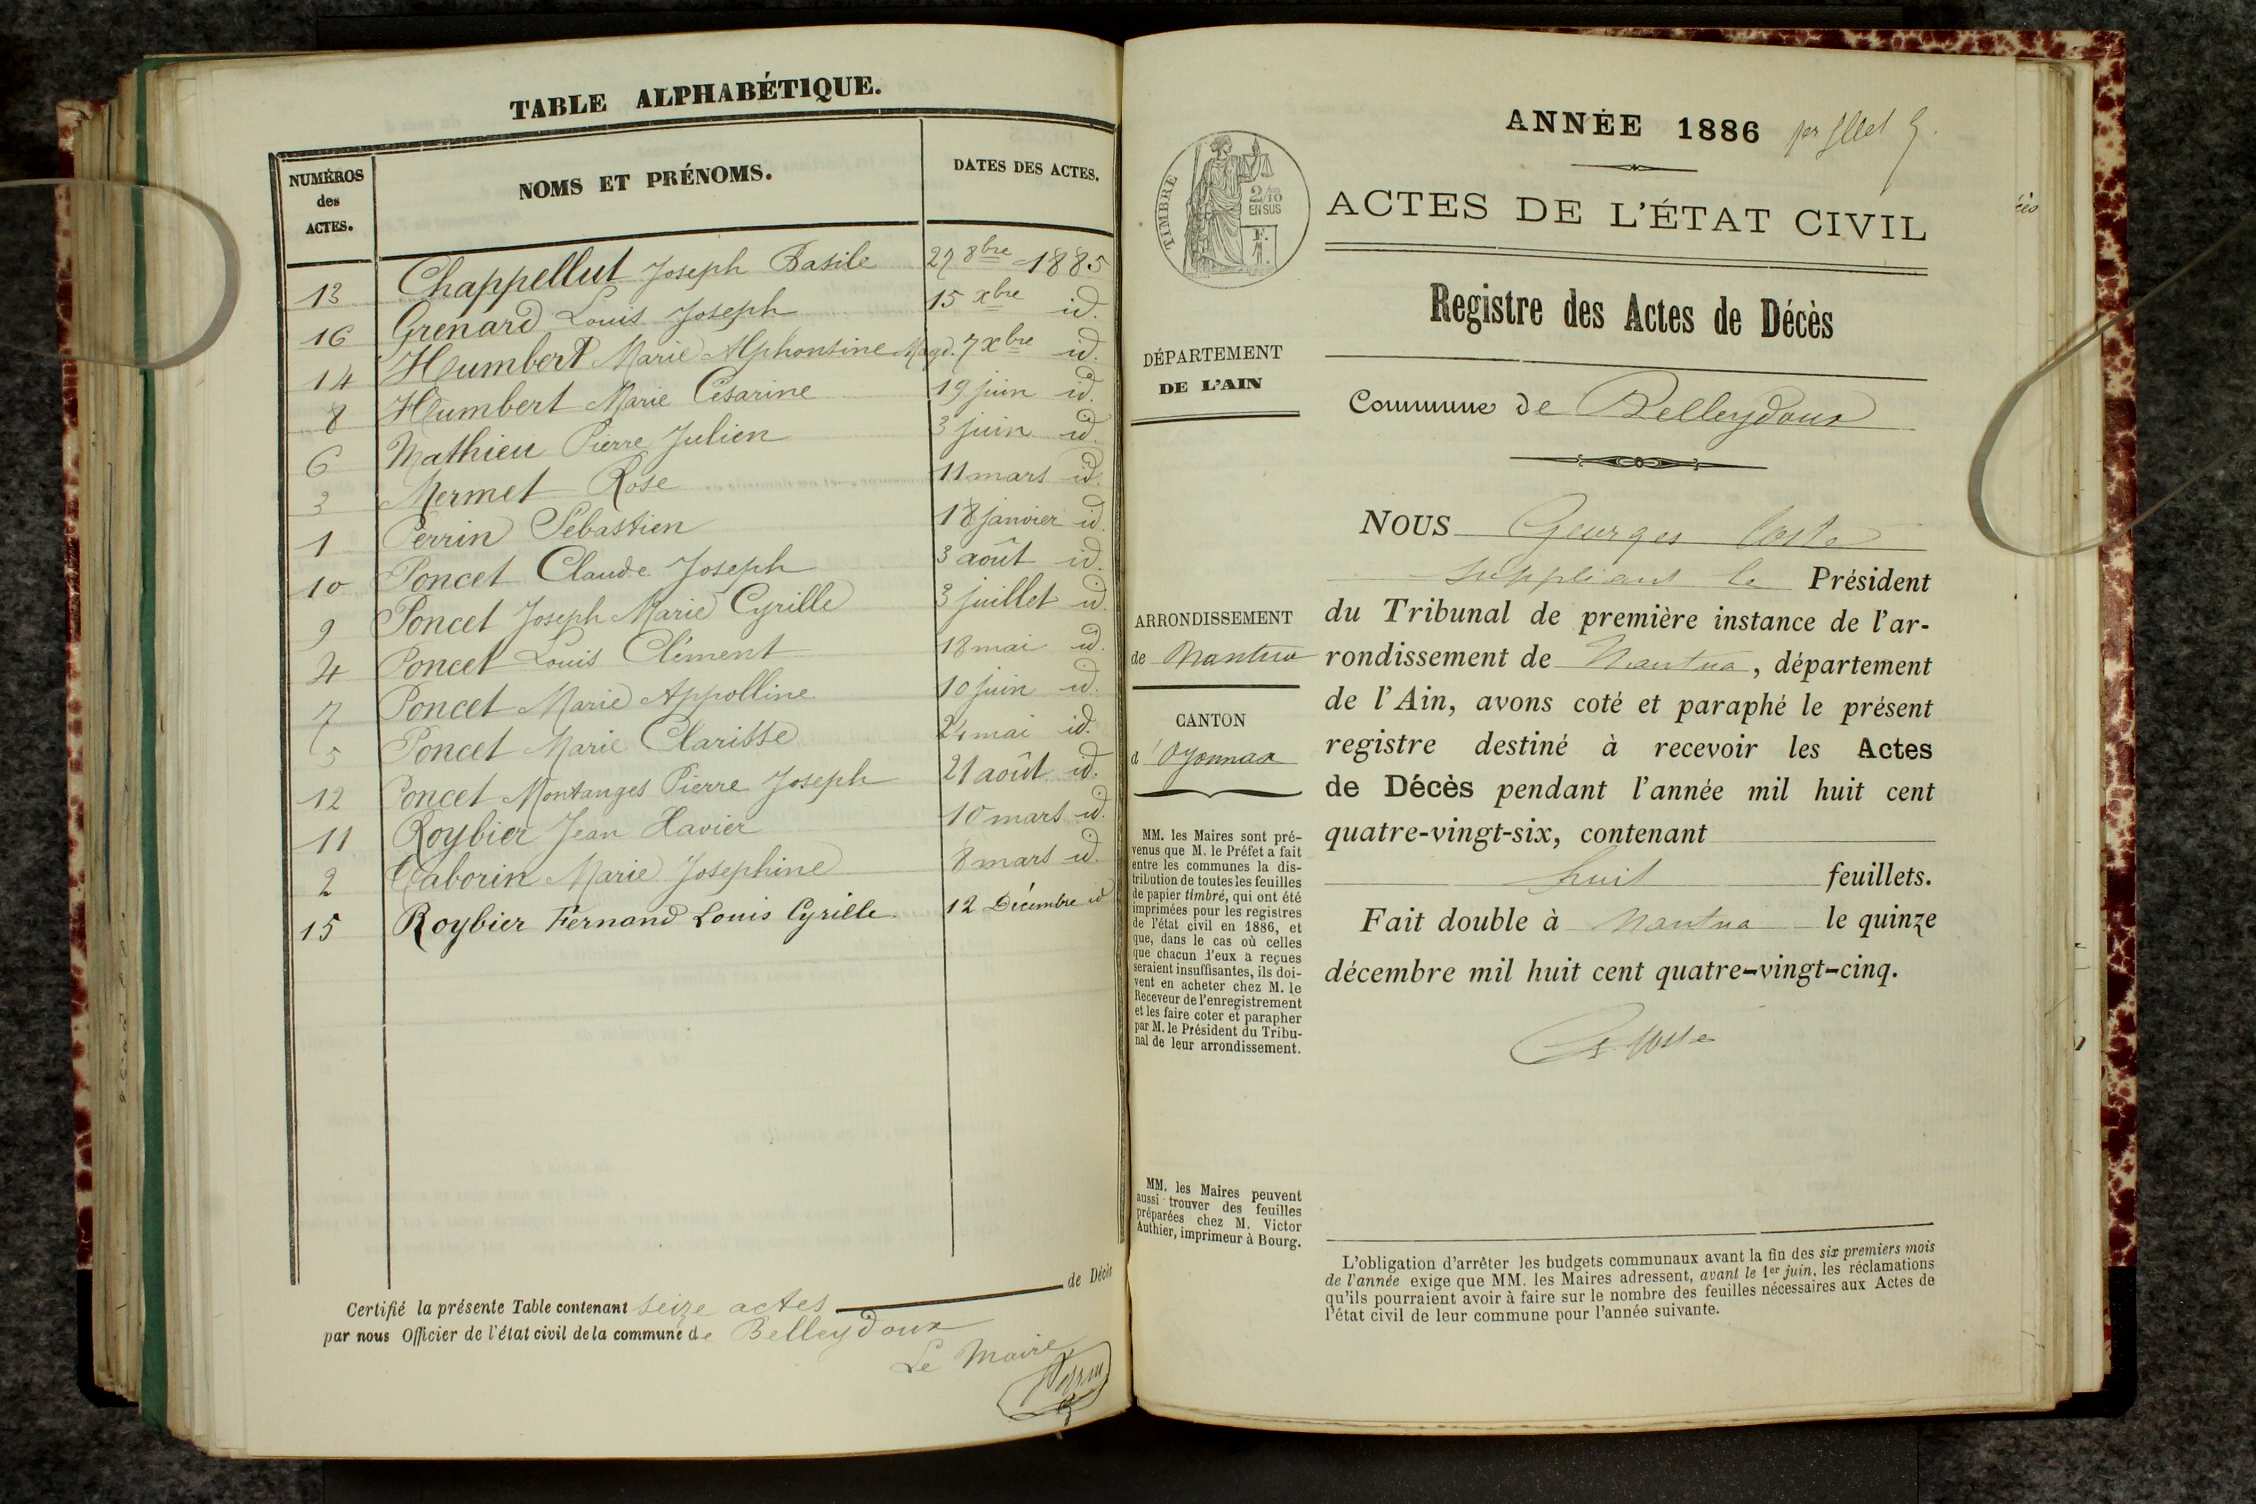 TABLE ALPHABÉTIQUE.
NUMÉROS des ACTES. NOMS ET PRÉNOMS. DATES DES ACTES.
13 Chappellut Joseph Basile 27 8bre 1885
16 Grenard Louis Joseph 15 xbre id.
14 Humbert Marie Alphonsine Magd. 7 xbre id.
8 Humbert Marie Césarine 19 juin id.
6 Mathieu Pierre Julien 3 juin id.
3 Mermet Rose 11 mars id.
1 Perrin Sébastien 18 janvier id.
10 Poncet Claude Joseph 3 août id.
9 Poncet Joseph Marie Cyrille 3 juillet id.
4 Poncet Louis Clément 18 mai id.
7 Poncet Marie Appolline 10 juin id.
5 Poncet Marie Clarisse 24 mai id.
12 Poncet Montanges Pierre Joseph 21 août id.
11 Roybier Jean Xavier 10 mars id.
2 Taborin Marie Josephine 8 mars id.
15 Roybier Fernand Louis Cyrille 12 Décembre id
Certifié la présente Table contenant seize actes de Décès
par nous Officier de l'état civil de la commune de Belleydoux
Le Maire
ANNÉE 1886 1er fllet
TIMBRE
2/10
EN SUS
F.
1
ACTES DE L'ÉTAT CIVIL
Registre des Actes de Décès
DÉPARTEMENT
DE L'AIN
Commune de Belleydoux
NOUS Georges Coste
suppléant le Président
du Tribunal de première instance de l'ar-
rondissement de Nantua, département
de l'Ain, avons coté et paraphé le présent
registre destiné à recevoir les Actes
de Décès pendant l'année mil huit cent
quatre-vingt-six, contenant
huit feuillets.
Fait double à Nantua le quinze
décembre mil huit cent quatre-vingt-cinq.
G Coste
ARRONDISSEMENT
de Nantua
CANTON
d'Oyonnax
MM. les Maires sont pré-
venus que M. le Préfet a fait
entre les communes la dis-
tribution de toutes les feuilles
de papier timbré, qui ont été
imprimées pour les registres
de l'état civil en 1886, et
que, dans le cas où celles
que chacun d'eux a reçues
seraient insuffisantes, ils doi-
vent en acheter chez M. le
Receveur de l'enregistrement
et les faire coter et parapher
par M. le Président du Tribu-
nal de leur arrondissement.
MM. les Maires peuvent
aussi trouver des feuilles
préparées chez M. Victor
Authier, imprimeur à Bourg.
L'obligation d'arrêter les budgets communaux avant la fin des six premiers mois
de l'année exige que MM. les Maires adressent, avant le 1er juin, les réclamations
qu'ils pourraient avoir à faire sur le nombre des feuilles nécessaires aux Actes de
l'état civil de leur commune pour l'année suivante.